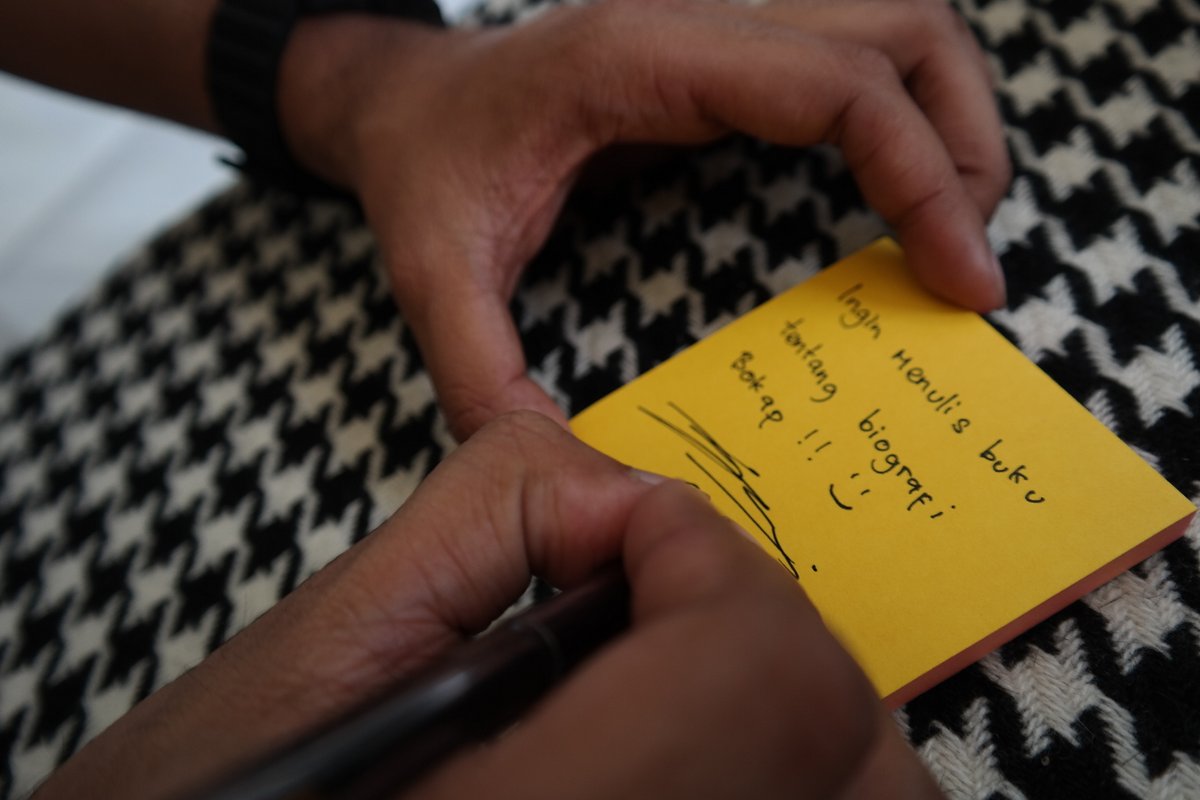 Ingin Menulis buku
tentang biografi
Bokap !! :)